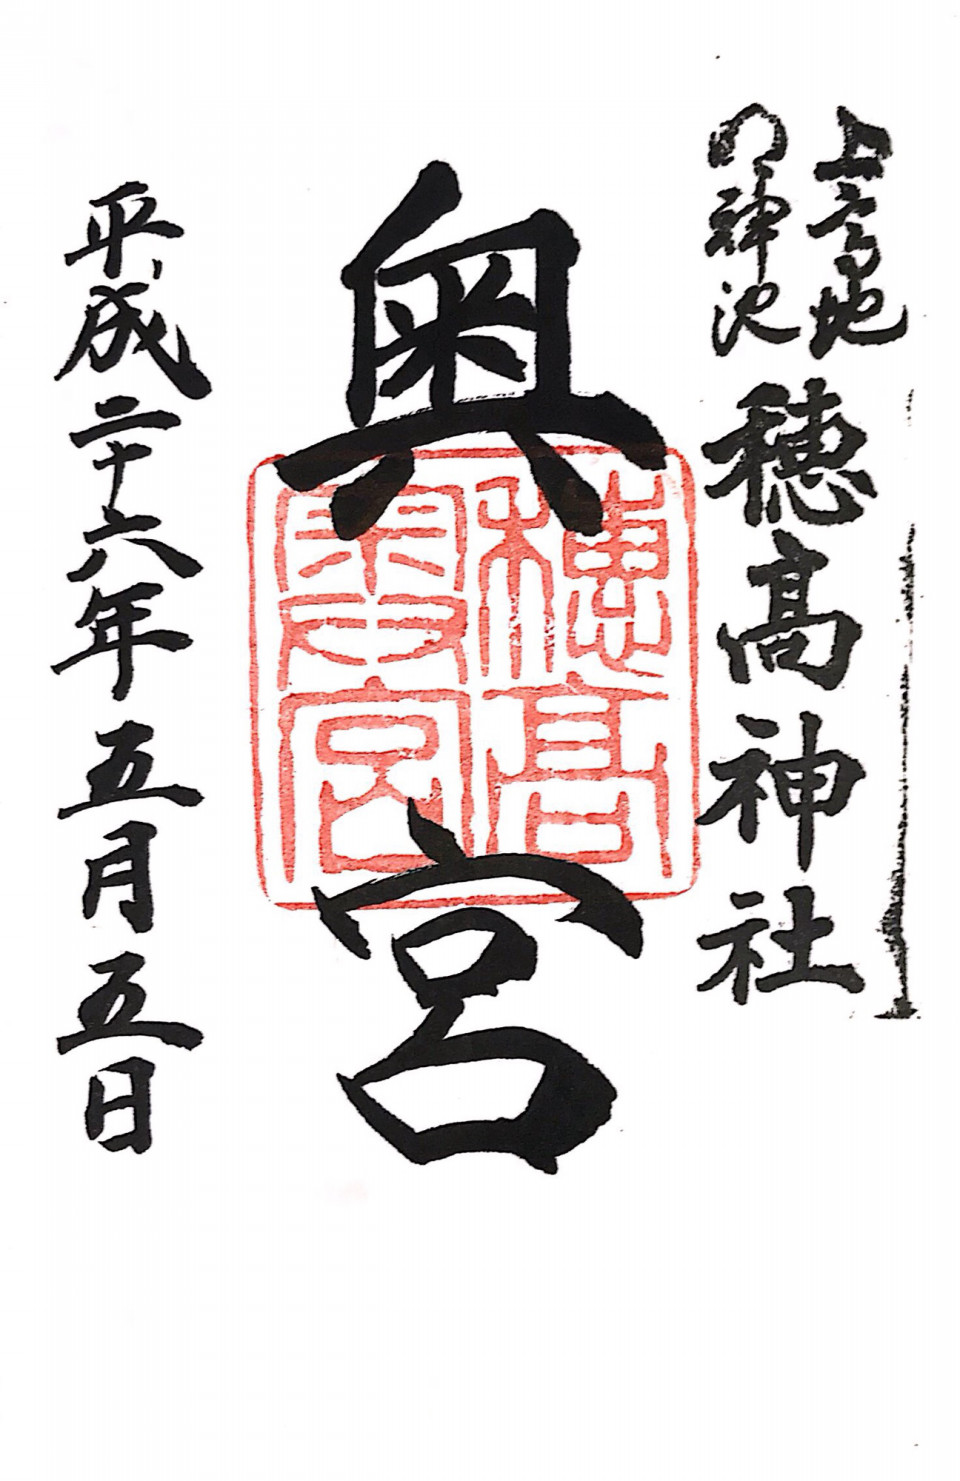 上高地
明神池
穂髙神社
奥宮
穂高
奥宮
平成二十六年五月五日